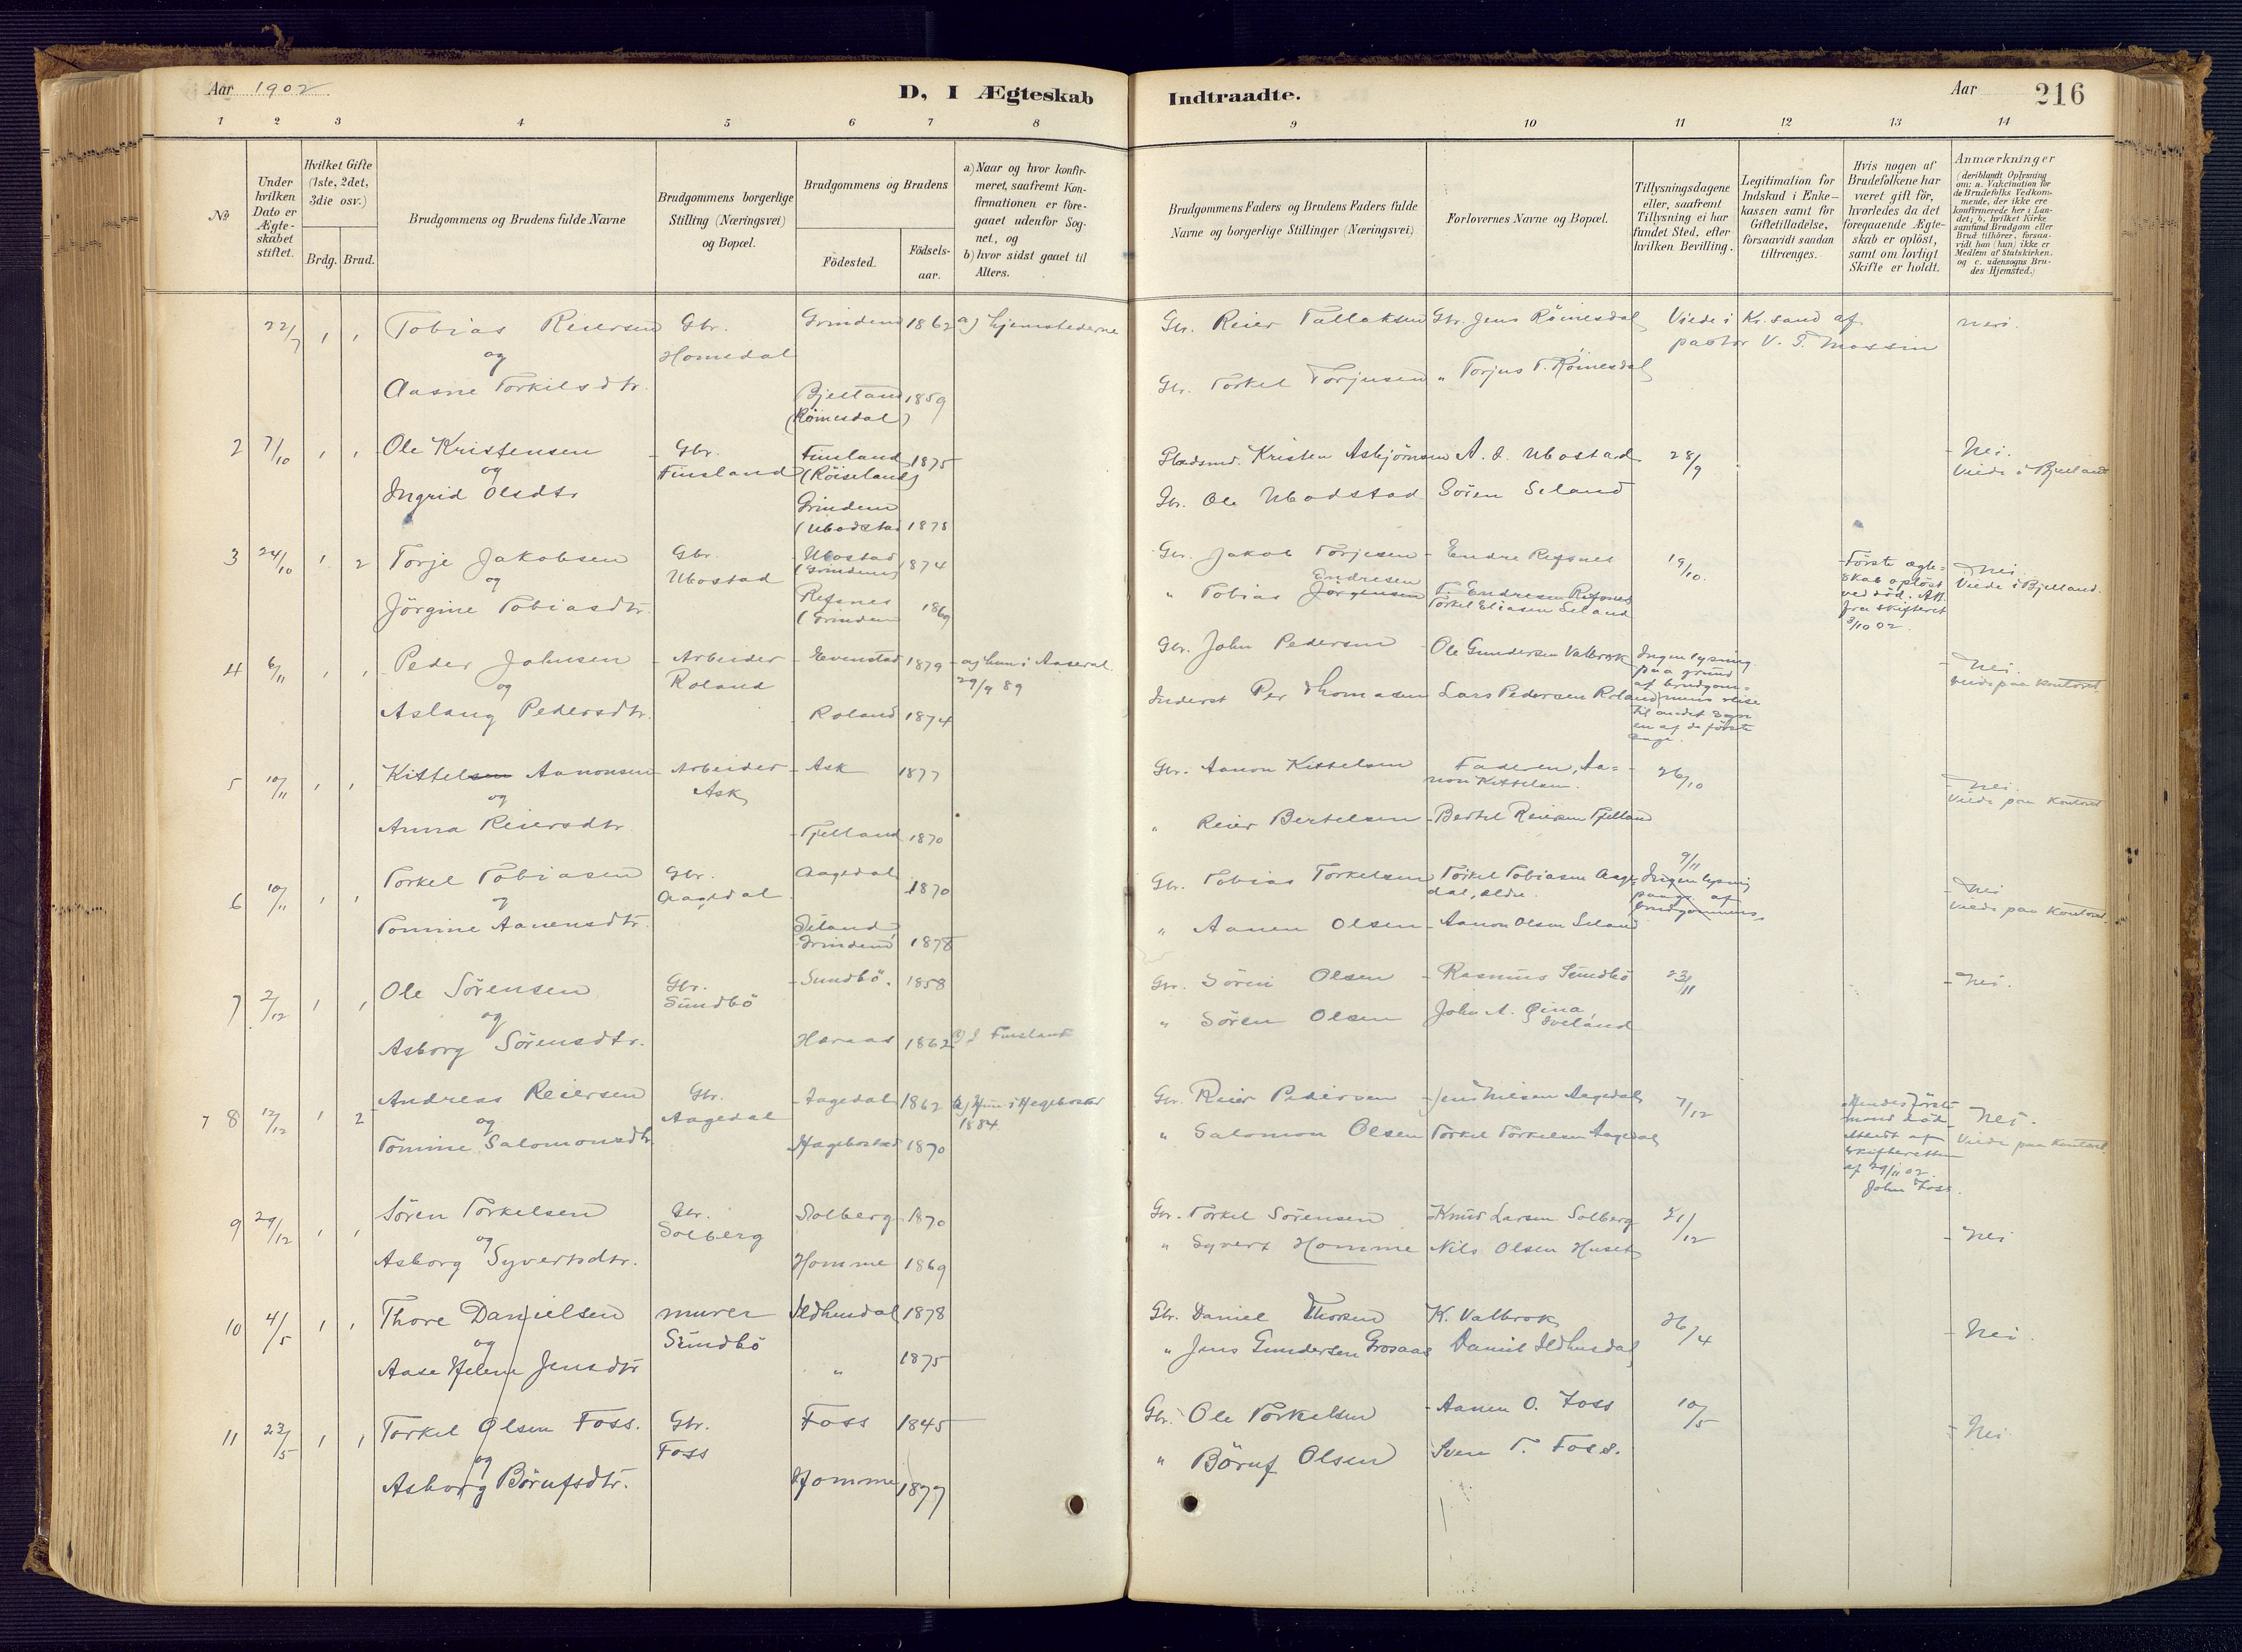 Aar 1902
D, I Ægteskab
Indtraadte.
Aar
216
1 2 3 4 5 6 7 8 9 10 11 12 13 14
No
Under hvilken Dato er Ægteskabet stiftet.
Hvilket Gifte (1ste, 2det, 3die osv.)
Brdg. Brud.
Brudgommens og Brudens fulde Navne
Brudgommens borgerlige Stilling (Næringsvei) og Bopæl.
Brudgommens og Brudens
Födested.
Födsels-aar.
a) Naar og hvor konfirmeret, saafremt Konfirmationen er foregaaet udenfor Sognet, og
b) hvor sidst gaaet til Alters.
Brudgommens Faders og Brudens Faders fulde Navne og borgerlige Stillinger (Næringsvei)
Forlovernes Navne og Bopæl.
Tillysningsdagene eller, saafremt Tillysning ei har fundet Sted, efter hvilken Bevilling.
Legitimation for Indskud i Enkekassen samt for Giftetilladelse, forsaavidt saadan tiltrænges.
Hvis nogen af Brudefolkene har været gift för, hvorledes da det foregaaende Ægteskab er oplöst, samt om lovligt Skifte er holdt.
Anmærkninger (deriblandt Oplysning om: a. Vakcination for de Brudefolks Vedkommende, der ikke ere konfirmerede her i Landet; b. hvilket Kirkesamfund Brudgom eller Brud tilhörer, forsaavidt han (hun) ikke er Medlem af Statskirken. og c. udensogns Brudes Hjemsted.)
22/7 1 1 Tobias Reiersen Gbr. Grindem 1862 a) hjemstederne Gbr. Reier Tallaksen Gbr. Jens Römesdal Viede i Kr.sand af nei.
og Homedal pastor V. T. Mossin
Aasne Torkilsdtr. Bjelland 1859 Gbr. Torkel Torjusen " Torjus T. Römesdal
(Römesdal)
2 7/10 1 1 Ole Kristensen Gbr. Finsland 1875 Kristen Asbjörnsen A. O. Ubostad 28/9 Nei.
og Finsland (Röiseland) Viede i Bjelland
Ingrid Olsdtr Grindem Gbr. Ole Ubodstad Sören Seland
(Ubodstad 1878
3 24/10 1 2 Torje Jakobsen Gbr. Ubostad 1874 Gbr. Jakob Torjesen Endre Refsnes 19/10. Förste ægte-
og Ubostad (Grindem) Endresen skab oplöst Nei
Jörgine Tobiasdtr. Refsnes 1869 " Tobias Jörgensen T. Endresen Refsnes ved död. Att. Viede i Bjelland.
(Grindem Torkel Eliasen Seland fra skifteret
3/10 02.
4 6/11 1 1 Peder Johnsen Arbeider Evenstad 1879 a) hun i Aaseral Gbr. John Pedersen Ole Gundersen Valbrok Ingen lysning Nei.
og Roland 29/9 89 paa grund Viede paa Kontoret.
Aslaug Pedersdtr. Roland 1874 Inderst Per Thomasen Lars Pedersen Roland af brudgom-
mens reise
til andet sogn
en af de förste
dage.
5 10/11 1 1 Kittelsen Aanonsen Arbeider Ask 1877 Gbr. Aanon Kittelsen Faderen, Aa- 26/10 Nei.
og Ask non Kittelsen. Viede paa Kontoret
Anna Reiersdtr Fjelland 1870 " Reier Bertelsen Bertel Reiersen Fjelland
6 10/11 1 1 Torkel Tobiasen Gbr. Aagedal 1870 Gbr. Tobias Torkelsen Torkel Tobiasen Aage- 9/11 Nei
og Aagedal dal, ældre. Ingen lysning Viede paa Kontoret.
Tomine Aanensdtr. Seland, " Aanen Olsen Aanon Olsen Seland paagr. af
Grindem 1878 brudgommens
7 2/12 1 1 Ole Sörensen Gbr. Sundbö. 1858 Gbr. Sören Olsen Rasmus Sundbö 23/11 Nei.
og Sundbö
Asborg Sörensdtr. Haraas 1862 a) I Finsland " Sören Olsen John A. Öina,
Iveland
7 8 12/12 1 2 Andreas Reiersen Gbr. Aagedal 1862 a) Hun i Hegebostad Gbr. Reier Pedersen Jens Nielsen Aagedal 7/12 Hendes förste Nei.
og Aagedal 1884 mand död. Viede paa Kontoret.
Tomine Salomonsdtr Hagebostad 1870 " Salomon Olsen Torkel Torkelsen Aagedal Attest af
skifteretten
af 29/11 02.
John Foss.
9 29/12 1 1 Sören Torkelsen Gbr. Solberg 1870 Gbr. Torkel Sörensen Knud Larsen Solberg 21/12 Nei
og Solberg
Asborg Syvertsdtr. Homme 1869 " Syvert Homme Nils Olsen Huset
10 4/5 1 1 Thore Danielsen murer Ildhusdal 1878 Gbr. Daniel Thorsen K. Valbrok 26/4 Nei.
og Sundbö
Aase Helene Jensdtr " 1875 " Jens Gundersen Grosaas Daniel Ildhusdal
11 23/5 1 1 Torkel Olsen Foss. Gbr. Foss 1845 Gbr. Ole Torkelsen Aanen O. Foss 10/5 Nei
og Foss
Asborg Börufsdtr. Homme 1877 " Böruf Olsen Sven T. Foss.